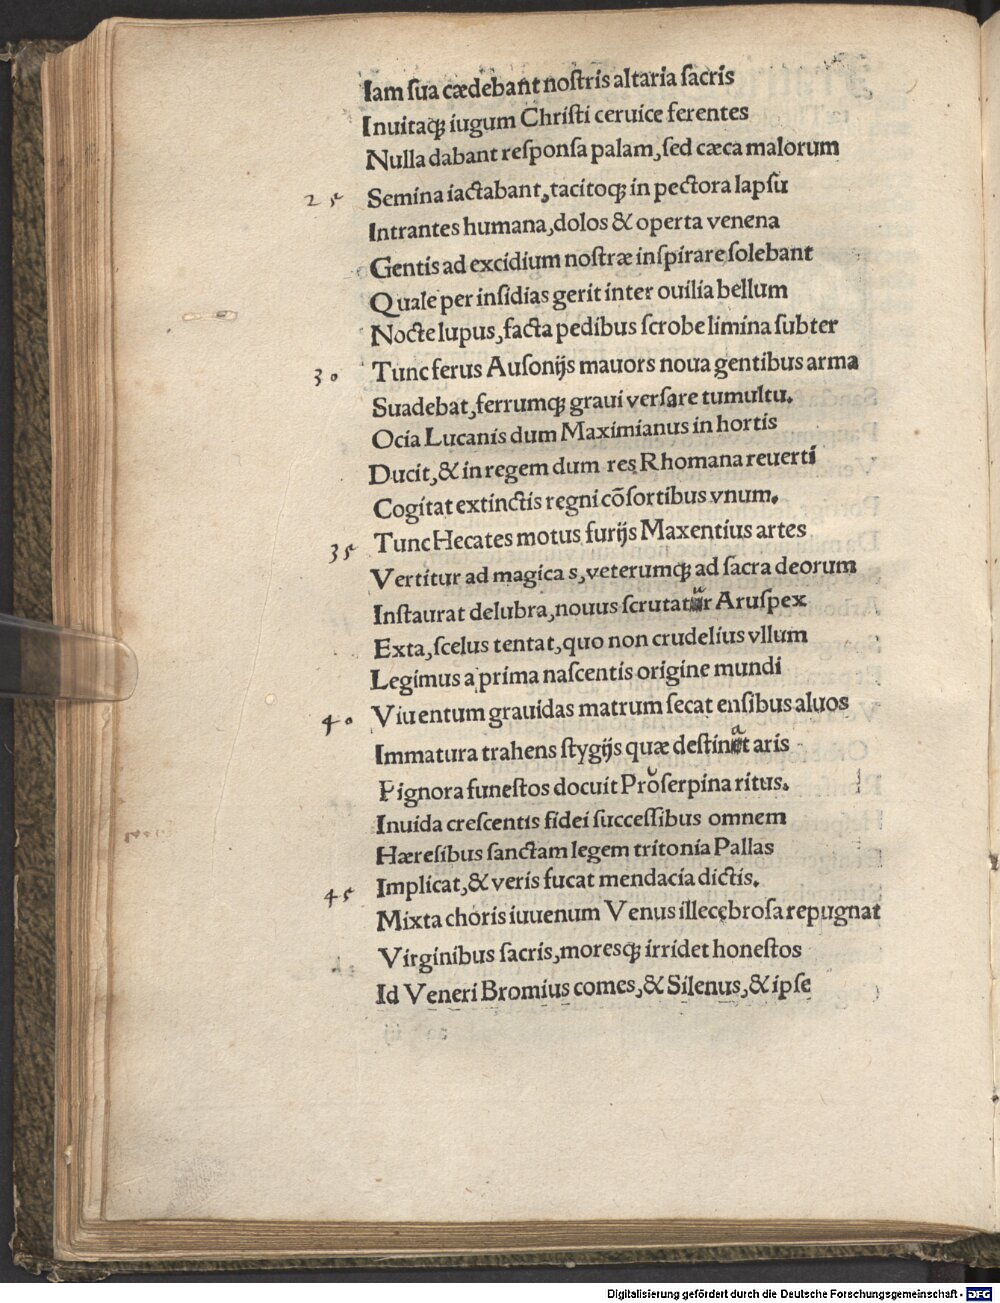 Iam ſua cædebant noſtris altaria ſacris
Inuitaqꝫ iugum Chriſti ceruice ferentes
Nulla dabant reſponſa palam, ſed cæca malorum
25 Semina iactabant, tacitoqꝫ in pectora lapſu
Intrantes humana, dolos & operta venena
Gentis ad excidium noſtræ inſpirare ſolebant
Quale per inſidias gerit inter ouilia bellum
Nocte lupus, facta pedibus ſcrobe limina ſubter
30 Tunc ferus Auſonijs mauors noua gentibus arma
Suadebat, ferrumqꝫ graui verſare tumultu.
Ocia Lucanis dum Maximianus in hortis
Ducit, & in regem dum res Rhomana reuerti
Cogitat extinctis regni cõſortibus vnum.
35 Tunc Hecates motus furijs Maxentius artes
Vertitur ad magicas, veterumqꝫ ad ſacra deorum
Inſtaurat delubra, nouus ſcrutatur Aruſpex
Exta, ſcelus tentat, quo non crudelius vllum
Legimus a prima naſcentis origine mundi
40 Viuentum grauidas matrum ſecat enſibus aluos
Immatura trahens ſtygijs quæ deſtinat aris
Pignora funeſtos docuit Proſerpina ritus.
Inuida creſcentis fidei ſucceſſibus omnem
Hæreſibus ſanctam legem tritonia Pallas
45 Implicat, & veris fucat mendacia dictis.
Mixta choris iuuenum Venus illecębroſa repugnat
Virginibus ſacris, moresqꝫ irridet honeſtos
Id Veneri Bromius comes, & Silenus, & ipſe
Digitalisierung gefördert durch die Deutsche Forschungsgemeinschaft - DFG